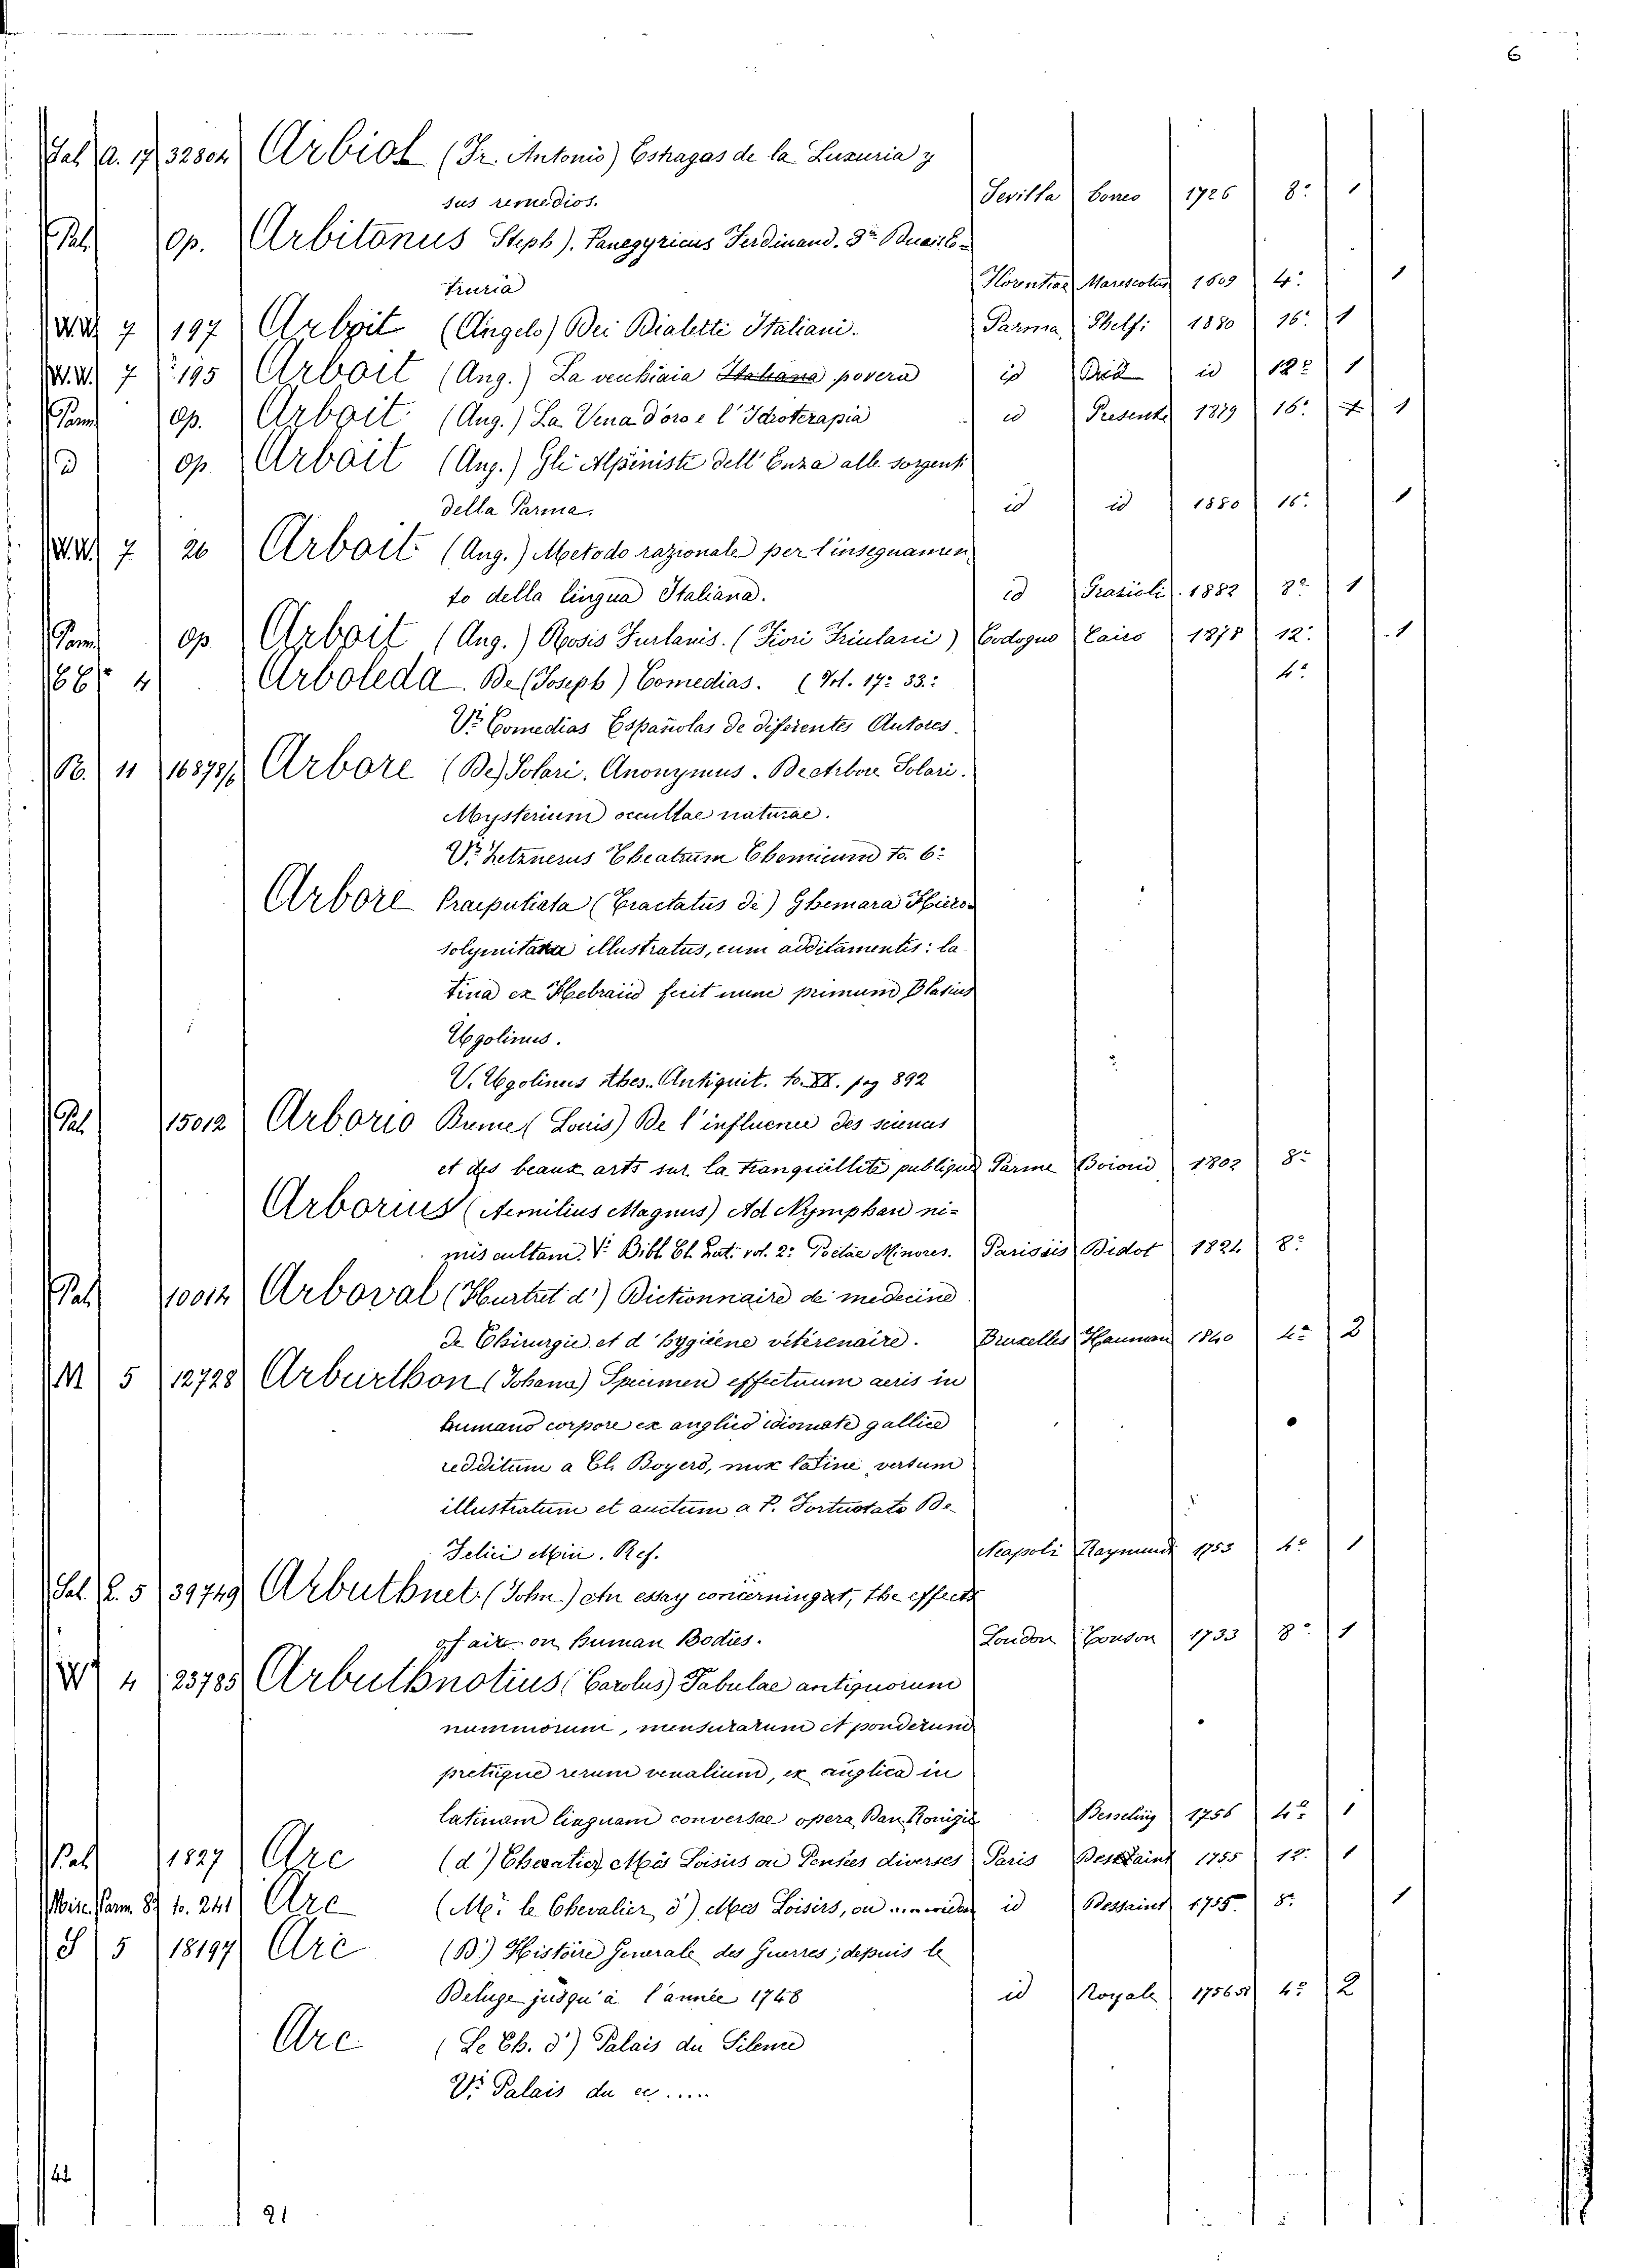 6
Sal. A. 17 32804 Arbiol (Fr. Antonio) Estragas de la Luxuria y
sus remedios. Sevilla Correo 1726 8º 1
Pal. Op. Arbitonus Steph). Panegyricus Ferdinand.
truria Florentiae Marescotus 1609 4º 1
W.W. 7 197 Arboit (Angelo) Dei Dialetti Italiani. Parma 1880 16º 1
W.W. 7 195 Arboit (Ang.) La povera id id 12º 1
Parm. Op. Arboit (Aug.) La Vena d'oro e l'Idroterapia id 1879 16º 1
Op. Arboit (Aug.) Gli Alpinisti dell' Enza alle sorgenti
della Parma. id id 1880 16º 1
W.W. 7 26 Arboit (Aug.) Metodo razionale per l'insegnamen
to della lingua Italiana. id Grazioli 1882 8º 1
Parm. Op Arboit (Aug.) Rosis Furlanis. (Fiori Friulani) Codogno Cairo 1878 12º 1
4 Arboleda. De (Joseph) Comedias. (Vol. 17: 33: 4º
Vº Comedias Españolas de diferentes Autores.
B. 11 16878/6 Arbore (De) Solari. Anonymus. De Arbore Solari.
Mysterium occultae naturae.
Vº Zetznerus Theatrum Chemicum to. 6º
Arbore Praeputiata (Tractatus de) Ghemara Hiero
solymitana illustratus, cum additamentis: la
tina ex Hebraico fecit nunc primum Blasius
Ugolinus.
V. Ugolinus Thes. Antiquit. to. XX. pag 892
Pal. 15012 Arborio Bume (Louis) De l'influence des sciences
et des beaux arts sur la tranquillité publique Parme 1802 8º
Arborius (Aemilius Magnus) Ad Nympham ni-
mis cultam. Vº Bibl. Cl. Lat. vol. 2: Poetae Minores. Parisiis Didot 1824 8º
Pal. 10014 Arboval (Hurtret d') Dictionnaire de medecine
de Chirurgie et d'hygiene vétérenaire. Bruxelles Hauman 1840 4º 2
M 5 12728 Arburthon (Johann) Specimen effectuum aeris in
humano corpore ex anglico idiomate gallice
redditum a Cl. Boyero, mox latine versum
illustratum et auctum a P. Fortunato De
Felici Min. Ref. Neapoli Raymundi 1753 4º 1
Sal. 5 39749 Arbuthnet (John) An essay concerning at, the effects
of aire on human Bodies. London Tonson 1733 8º 1
W 4 23785 Arbuthnotius (Carolus) Tabulae antiquorum
nummorum, mensurarum et ponderum
pretiique rerum venalium, ex anglica in
latinam linguam conversae opera Dan. Konigii Besseling 1756 4º 1
Pal. 1827 Arc (d') Chevalier Mes Loisirs ou Pensées diverses Paris Dessaint 1755 12º 1
Misc. Parm. 8º to. 241 Arc (Mr. le Chevalier d') Mes Loisirs, ou id Dessaint 1755 8º 1
S 5 18197 Arc (D.) Histoire Generale des Guerres; depuis le
Deluge jusqu'à l'année 1748 id Royale 1756 4º 2
Arc (Le Ch. d') Palais du Silence
Vº Palais du ec.....
21